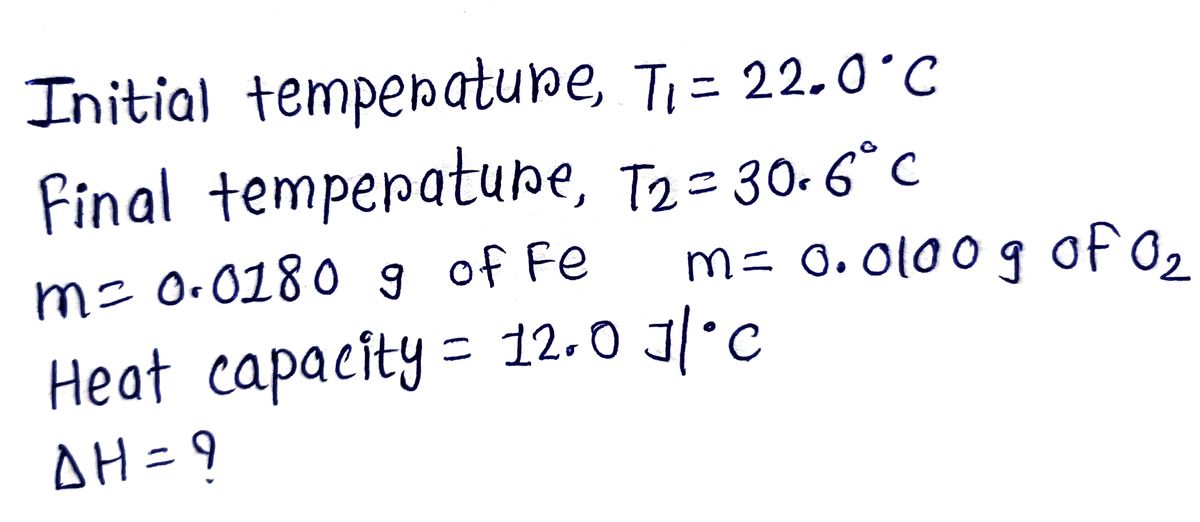 Initial temperature, T1 = 22.0°C
Final temperature, T2 = 30.6°C
m = 0.0180 g of Fe m = 0.0100 g of O2
Heat capacity = 12.0 J/°C
ΔH = ?